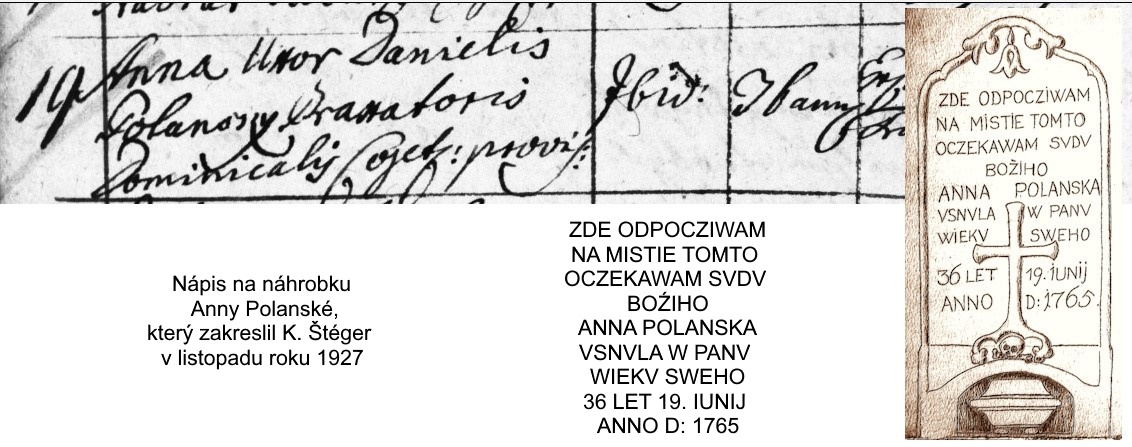 19 Anna Uxor Danielis
Polansky Braxatoris
Dominicalis
Ibid:
Nápis na náhrobku
Anny Polanské,
který zakreslil K. Štéger
v listopadu roku 1927
ZDE ODPOCZIWAM
NA MISTIE TOMTO
OCZEKAWAM SVDV
BOŹIHO
ANNA POLANSKA
VSNVLA W PANV
WIEKV SWEHO
36 LET 19. IUNIJ
ANNO D: 1765
ZDE ODPOCZIWAM
NA MISTIE TOMTO
OCZEKAWAM SVDV
BOŽIHO
ANNA POLANSKA
VSNVLA W PANV
WIEKV SWEHO
36 LET 19. IUNIJ
ANNO D: 1765.